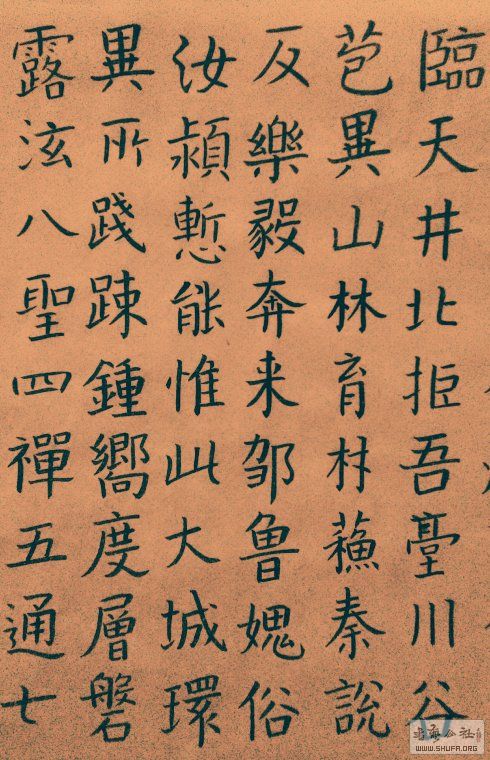 臨天井北拒吾臺川谷
苞異山林育材蘓秦說
反樂毅奔来邹魯媿俗
汝潁慙能惟此大城環
異所踐踈鍾嚮度層磐
露泫八聖四禪五通七
WWW.SHUFA.ORG